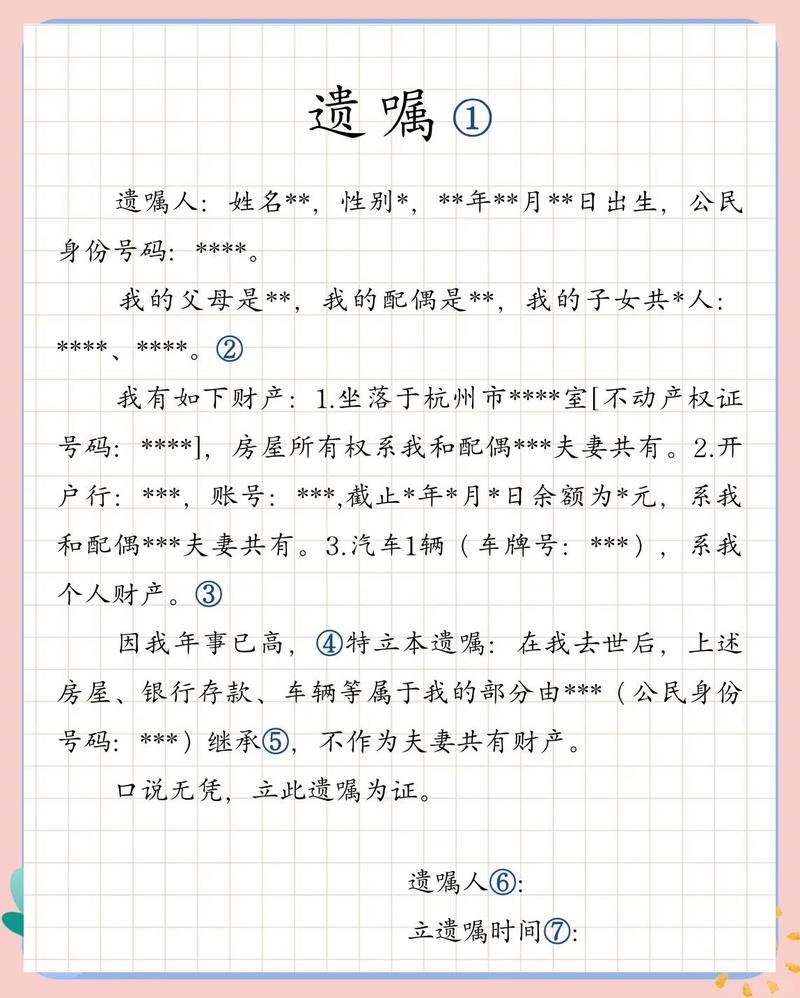 遗嘱①
遗嘱人：姓名**，性别*，**年**月**日出生，公民
身份号码：****。
我的父母是**，我的配偶是**，我的子女共*人：
****、****。②
我有如下财产：1.坐落于杭州市****室[不动产权证
号码：****]，房屋所有权系我和配偶***夫妻共有。2.开
户行：***，账号：***,截止*年*月*日余额为*元，系我
和配偶***夫妻共有。3.汽车1辆（车牌号：***），系我
个人财产。③
因我年事已高，④特立本遗嘱：在我去世后，上述
房屋、银行存款、车辆等属于我的部分由***（公民身份
号码：***）继承⑤，不作为夫妻共有财产。
口说无凭，立此遗嘱为证。
遗嘱人⑥：
立遗嘱时间⑦：